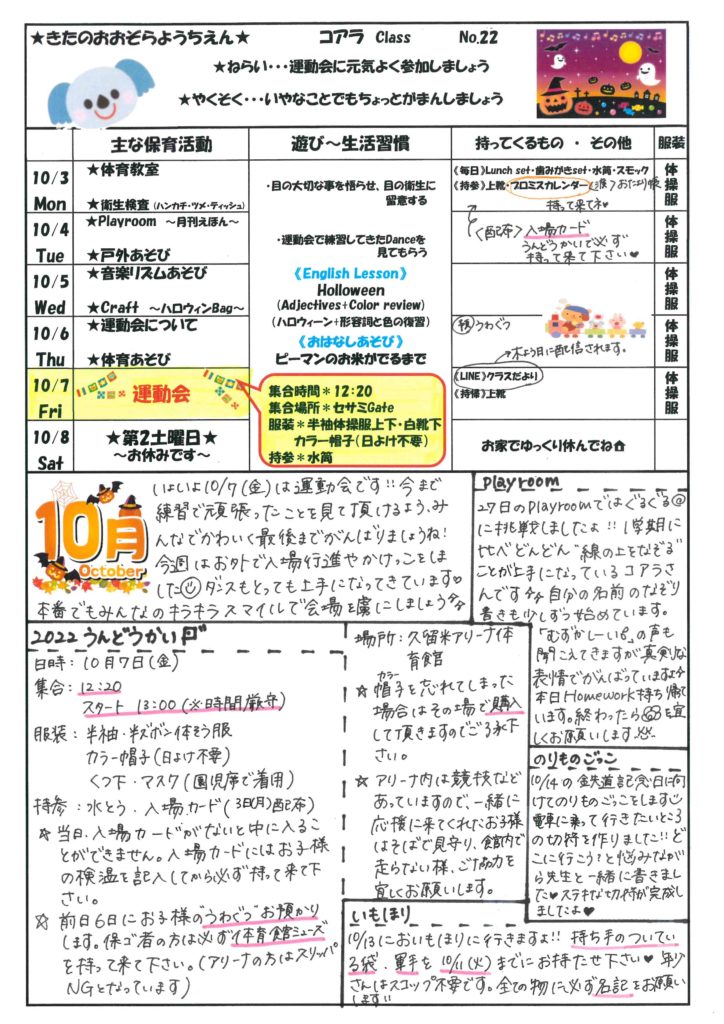 ★きたのおおぞらようちえん★ コアラ Class No.22
★ねらい・・・運動会に元気よく参加しましょう
★やくそく・・・いやなことでもちょっとがまんしましょう
主な保育活動 遊び～生活習慣 持ってくるもの ・ その他 服装
10/3 Mon
★体育教室
★衛生検査(ハンカチ・ツメ・ティッシュ)
・目の大切な事を悟らせ、目の衛生に
留意する
《毎日》Lunch set・歯みがきset・水筒・スモック
《持参》上靴・プロミスカレンダー
持って来てネ♡
体操服
10/4 Tue
★Playroom ～月刊えほん～
★戸外あそび
・運動会で練習してきたDanceを
見てもらう
〈配布〉入場カード
うんどうかいで必ず
持って来て下さい♥
体操服
10/5 Wed
★音楽リズムあそび
★Craft ～ハロウィンBag～
《English Lesson》
Holloween
(Adjectives+Color review)
(ハロウィーン+形容詞と色の復習)
体操服
10/6 Thu
★運動会について
★体育あそび
《おはなしあそび》
ピーマンのお米がでるまで
うわぐつ
木よう日に配信されます。
体操服
10/7 Fri
運動会
集合時間＊12:20
集合場所＊セサミGate
服装＊半袖体操服上下・白靴下
カラー帽子(日よけ不要)
持参＊水筒
《LINE》クラスだより
《持帰》上靴
体操服
10/8 Sat
★第2土曜日★
～お休みです～
お家でゆっくり休んでね
10月
October
いよいよ10/7(金)は運動会です!!今まで
練習で頑張ったことを見て頂けるよう、み
んなでかわいく最後までがんばりましょうね!
今週はお外で入場行進やかけっこをしま
した☺ダンスもとっても上手になってきています♡
本番でもみんなのキラキラスマイルで会場を虜にしましょう
Playroom
27日のPlayroomではぐるぐる@
に挑戦しましたよ!!1学期に
比べどんどん"線の上をなぞる"
ことが上手になっているコアラさ
んです 自分の名前のなぞり
書きも少しずつ始めています。
「むずかしーい。」の声も
聞こえてきますが真剣な
表情でがんばっています
本日Homework持ち帰って
います。終わったら を宜
しくお願いします
2022うんどうかい
日時：10月7日(金)
集合：12:20
スタート 13:00(※時間厳守)
服装：半袖・半ズボン体そう服
カラー帽子(日よけ不要)
くつ下・マスク(園児席で着用)
持参：水とう、入場カード(3日(月)配布)
☆当日、入場カードがないと中に入るこ
とができません。入場カードにはお子様
の検温を記入してから必ず持って来て下
さい。
☆前日6日にお子様の"うわぐつ"お預かり
します。保ゴ者の方は必ず体育館シューズ
を持って来て下さい。(アリーナの方はスリッパ
NGとなっています)
場所：久留米アリーナ体
育館
☆カラー帽子を忘れてしまった
場合はその場で購入
して頂きますのでご了承下
さい。
☆アリーナ内は競技など
あっていますので、一緒に
応援に来てくれたお子様
はそばで見守り、館内で
走らない様、ご協力を
宜しくお願いします。
のりものごっこ
10/14の鉄道記念日に向
けてのりものごっこをします
電車に乗って行きたいところ
の切符を作りました!!ど
こに行こう?と悩みなが
ら先生と一緒に書きまし
た♥ステキな切符が完成し
ましたよ♥
いもほり
10/13においもほりに行きますよ!!持ち手のついてい
る袋、軍手を10/11(火)までにお持たせ下さい♥年少
さんはスコップ不要です。全ての物に必ず名記をお願い
します!!